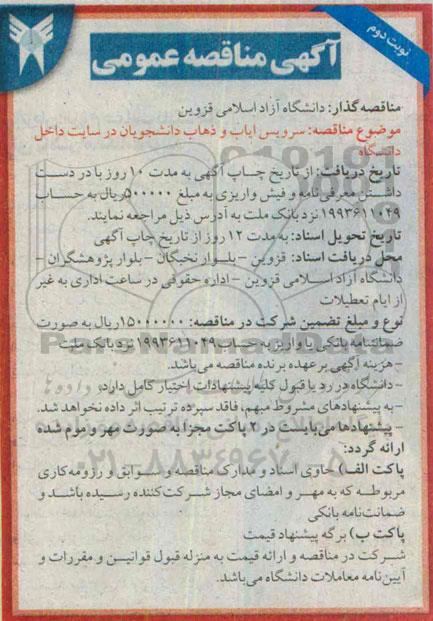 نوبت دوم
آگهی مناقصه عمومی
مناقصه گذار: دانشگاه آزاد اسلامی قزوین
موضوع مناقصه: سرویس ایاب و ذهاب دانشجویان در سایت داخل
دانشگاه
تاریخ دریافت: از تاریخ چاپ آگهی به مدت ۱۰ روز با در دست
داشتن معرفی نامه و فیش واریزی به مبلغ ۵۰۰۰۰۰ ریال به حساب
۱۹۹۳۶۱۱۰۴۹ نزد بانک ملت به آدرس ذیل مراجعه نمایند.
تاریخ تحویل اسناد: به مدت ۱۲ روز از تاریخ چاپ آگهی
محل دریافت اسناد: قزوین – بلوار نخبگان – بلوار پژوهشگران –
دانشگاه آزاد اسلامی قزوین – اداره حقوقی در ساعت اداری به غیر
از ایام تعطیلات
نوع و مبلغ تضمین شرکت در مناقصه: ۱۵۰۰۰۰۰۰ ریال به صورت
ضمانتنامه بانکی یا واریز به حساب ۱۹۹۳۶۱۱۰۴۹ نزد بانک ملت
– هزینه آگهی بر عهده برنده مناقصه می‌باشد.
– دانشگاه در رد یا قبول کلیه پیشنهادات اختیار کامل دارد.
– به پیشنهادهای مشروط مبهم، فاقد سپرده ترتیب اثر داده نخواهد شد.
– پیشنهادها می‌بایست در ۲ پاکت مجزا به صورت مهر و موم شده
ارائه گردد:
پاکت الف) حاوی اسناد و مدارک مناقصه و سوابق و رزومه کاری
مربوطه که به مهر و امضای مجاز شرکت کننده رسیده باشد و
ضمانت‌نامه بانکی
پاکت ب) برگه پیشنهاد قیمت
شرکت در مناقصه و ارائه قیمت به منزله قبول قوانین و مقررات و
آیین نامه معاملات دانشگاه می‌باشد.
ParsNamadData
۰۲۱-۸۸۳۴۹۶۷۰